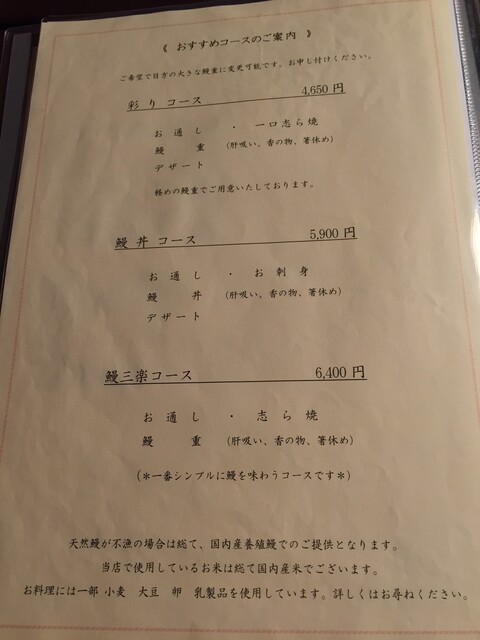 《 おすすめコースのご案内 》
ご希望で目方の大きな鰻重に変更可能です。お申し付けください。
彩り コース 4,650 円
お 通 し ・ 一口志ら焼
鰻 重 (肝吸い、香の物、箸休め)
デザート
軽めの鰻重でご用意いたしております。
鰻 丼 コース 5,900 円
お 通 し ・ お 刺 身
鰻 丼 (肝吸い、香の物、箸休め)
デザート
鰻三楽コース 6,400 円
お 通 し ・ 志 ら 焼
鰻 重 (肝吸い、香の物、箸休め)
(*一番シンプルに鰻を味わうコースです*)
天然鰻が不漁の場合は総て、国内産養殖鰻でのご提供となります。
当店で使用しているお米は総て国内産米でございます。
お料理には一部 小麦 大豆 卵 乳製品を使用しています。詳しくはお尋ねください。